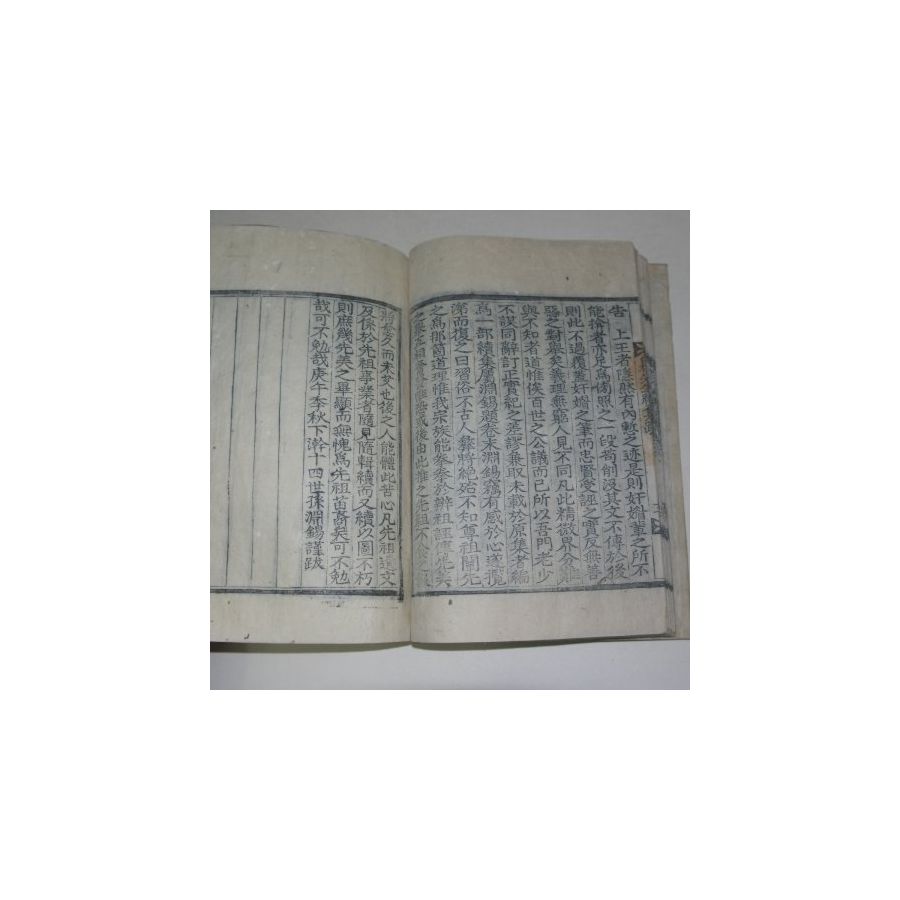 告 上王者隱然有內慙之迹是則奸婿輩之所不
能揜者亦爲備照之一段苟削沒其文不傳於後
則此不過覆蓋奸婿之筆而忠賢受誣之實反無善
惡之對擧矣義理無窮人見不同凡此精微界分難
與不知者道惟俟百世之公議而已所以吾門老少
不謀同辭訂正實記之差謬兼取未載於原集者編
爲一部續集屬淵錫題卷末淵錫竊有感於心遂攬
涕而復之曰習俗不古人彝將絶殆不知尊祖開先
之爲那箇道理惟我宗族能拳拳於辨祖誣備先美
由此推之先祖不
久而未艾也後之人能體此苦心凡先祖遺文
及係於先祖事業者隨見隨輯續而又續以圖不朽
則庶幾先美之畢顯而無愧爲先祖苗裔矣可不勉
哉可不勉哉庚午季秋下澣十四世孫淵錫謹跋